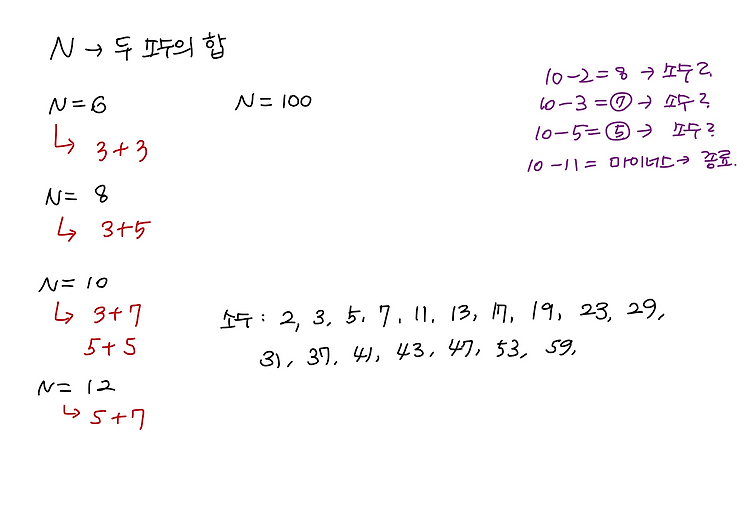 N → 두 소수의 합
N = 6
↳ 3 + 3
N = 8
↳ 3 + 5
N = 10
↳ 3 + 7
5 + 5
N = 12
↳ 5 + 7
N = 100
10 - 2 = 8 → 소수?
10 - 3 = ⑦ → 소수?
10 - 5 = ⑤ → 소수?
10 - 11 = 마이너스 → 종료.
소수 : 2, 3, 5, 7, 11, 13, 17, 19, 23, 29,
31, 37, 41, 43, 47, 53, 59,